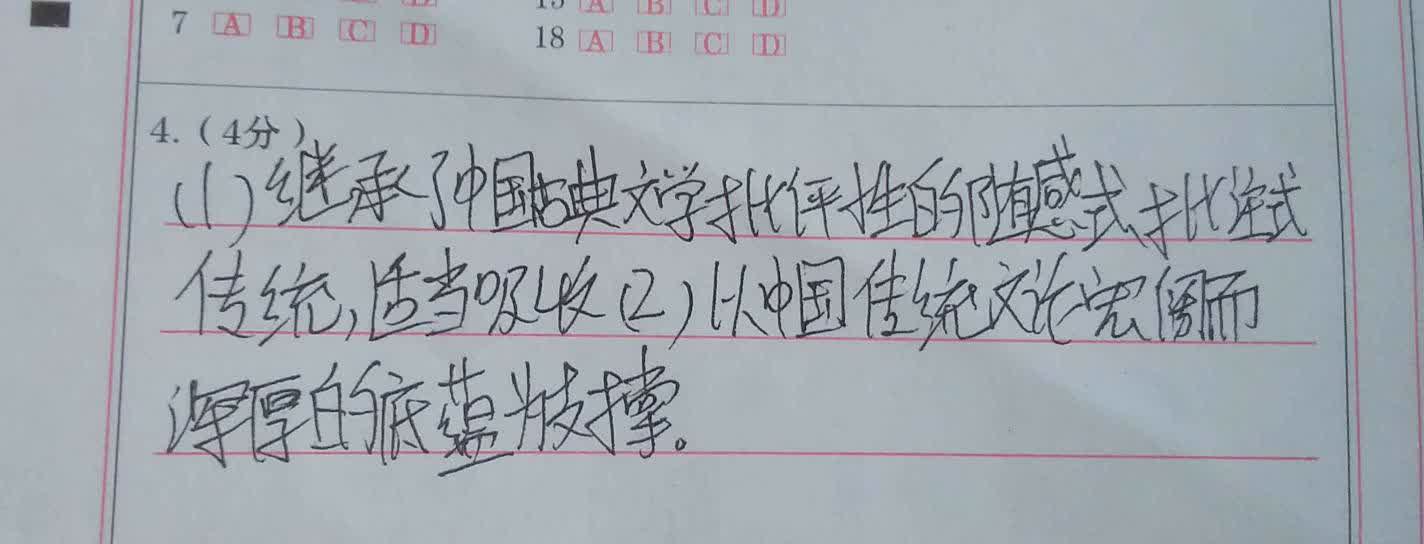 7 A B C D
18 A B C D
4.(4分)
(1)继承了中国古典文学批评性的随感式、批注式
传统,适当吸收(2)以中国传统文论宏阔而
浑厚的底蕴为支撑。